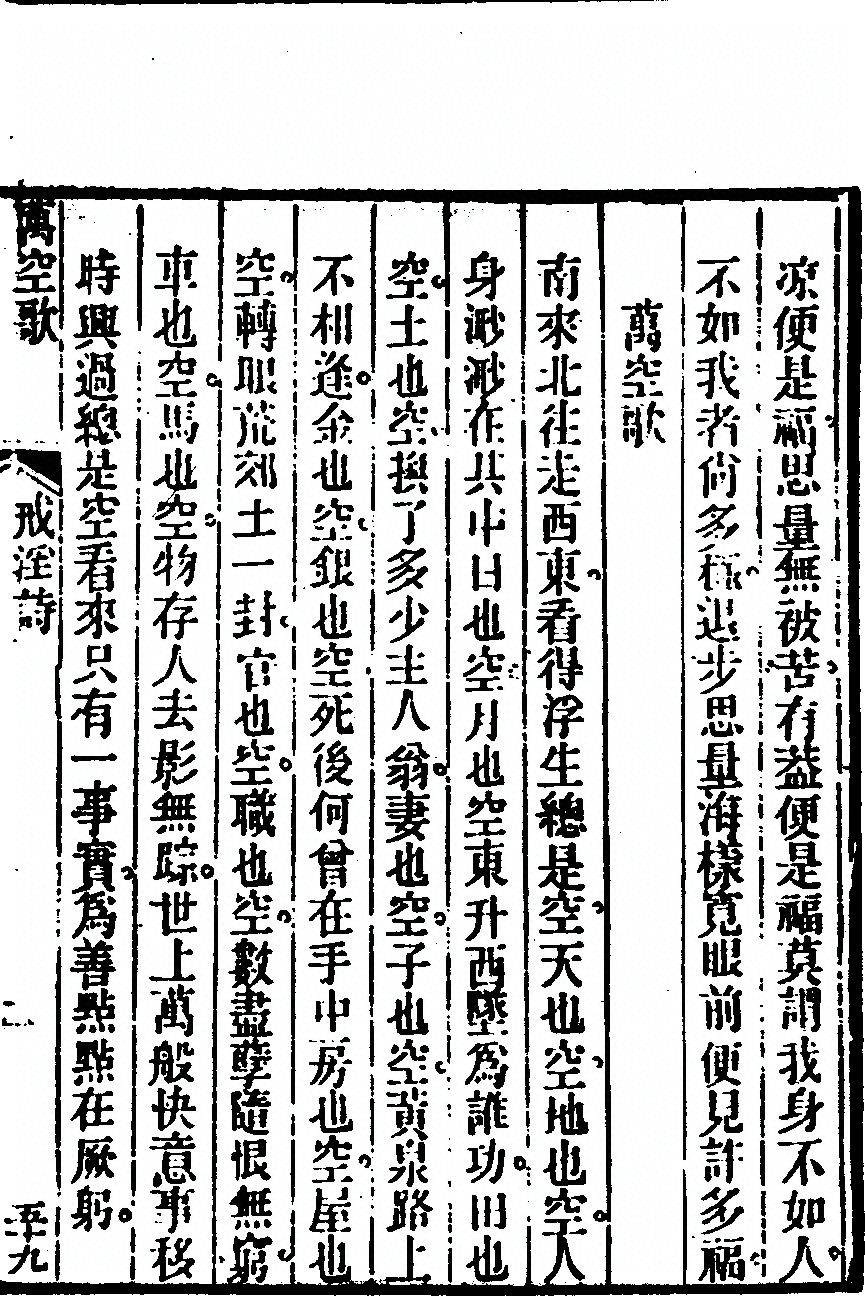 凉便是福思量無被苦有益便是福莫謂我身不如人
不如我者尚多種退步思量海樣寬眼前便見許多福
萬空歌
南來北往走西東看得浮生總是空天也空地也空人
身渺渺在其中日也空月也空東升西墜爲誰功田也
空土也空換了多少主人翁妻也空子也空黃泉路上
不相逢金也空銀也空死後何曾在手中房也空屋也
空轉眼荒郊土一封官也空職也空數盡孽隨恨無窮
車也空馬也空物存人去影無踪世上萬般快意事移
時興過總是空看來只有一事實爲善點點在厥躬
萬空歌
戒淫詩
五十九